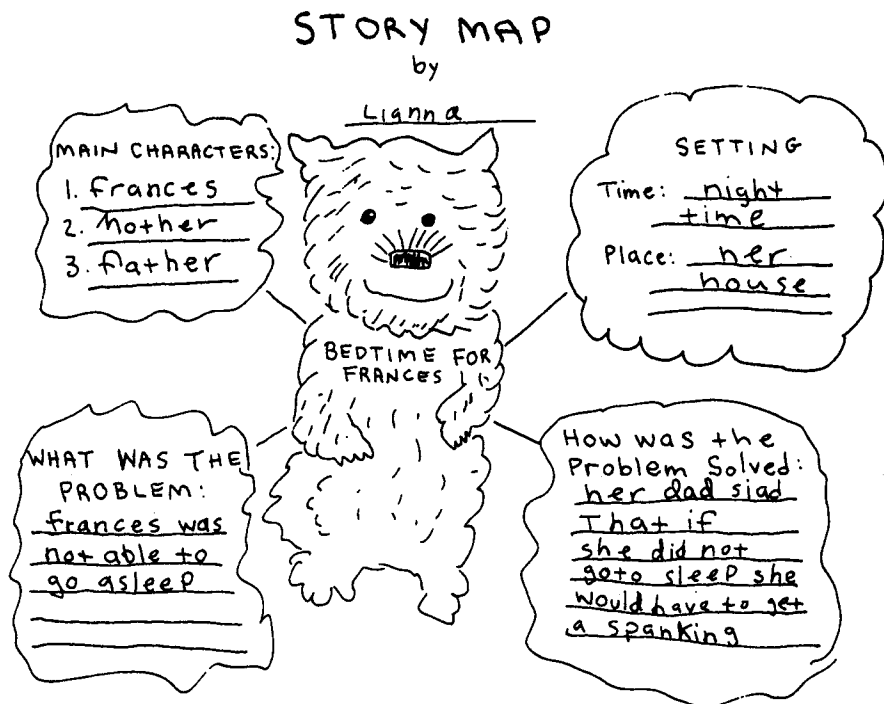 STORY MAP
by
Lianna
MAIN CHARACTERS:
1. frances
2. mother
3. father
SETTING
Time: night
time
Place: her
house
BEDTIME FOR
FRANCES
WHAT WAS THE
PROBLEM:
frances was
not able to
go asleep
How was the
Problem Solved:
her dad siad
That if
she did not
goto sleep she
would have to get
a spanking